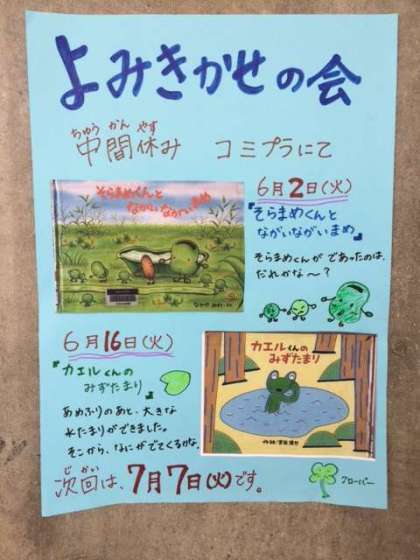 よみきかせの会
ちゅう かん やす
中間休み コミプラにて
そらまめくんと
ながいながいまめ
6月2日(火)
『そらまめくんと
ながいながいまめ』
そらまめくんが であったのは、
だれかな〜?
6月16日(火)
『カエルくんの
みずたまり』
あめふりのあと、大きな
水たまりができました。
そこから、なにがでてくるかな。
カエルくんの
みずたまり
じ かい
次回は、7月7日(火)です。
クローバー